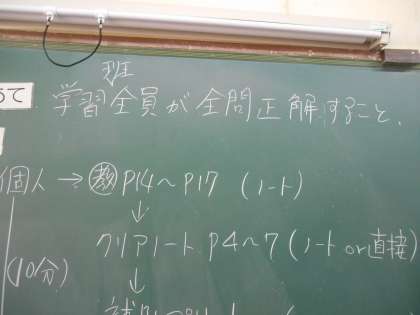 班
学習全員が全問正解すること。
個人 → 教 P14〜P17 (ノート)
↓
クリアノート P4〜7 (ノートor直接)
(10分)
↓